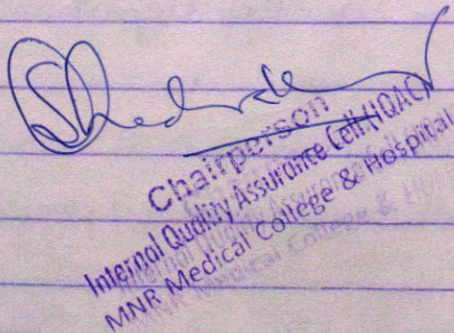 Chairperson
Internal Quality Assurance Cell (IQAC)
MNR Medical College & Hospital